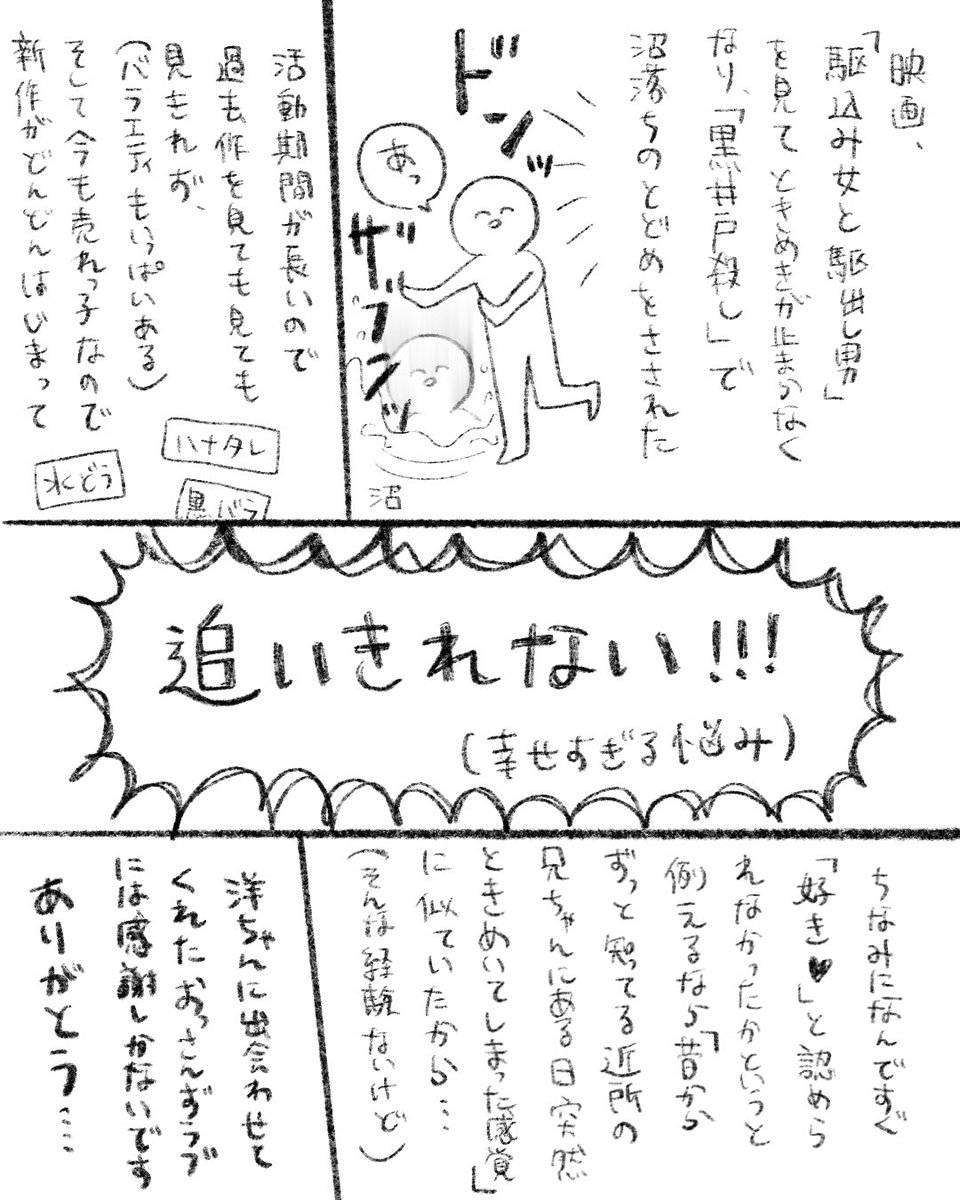 映画、
「駆込み女と駆出し男」
を見てときめきが止まらなく
なり、「黒井戸殺し」で
沼落ちのとどめをさされた
ドンッ
あっ
ザブンッ
沼
活動期間が長いので
過去作を見ても見ても
見きれず、
(バラエティもいっぱいある)
そして今も売れっ子なので
新作がどんどんはじまって
ハナタレ
水どう
黒バラ
追いきれない!!!
(幸せすぎる悩み)
ちなみになんですぐ
「好き♥」と認めら
れなかったかというと
例えるなら「昔から
ずっと知ってる近所の
兄ちゃんにある日突然
ときめいてしまった感覚」
に似ていたから…
(そんな経験ないけど)
洋ちゃんに出会わせて
くれたおっさんずラブ
には感謝しかないです
ありがとう‥‥